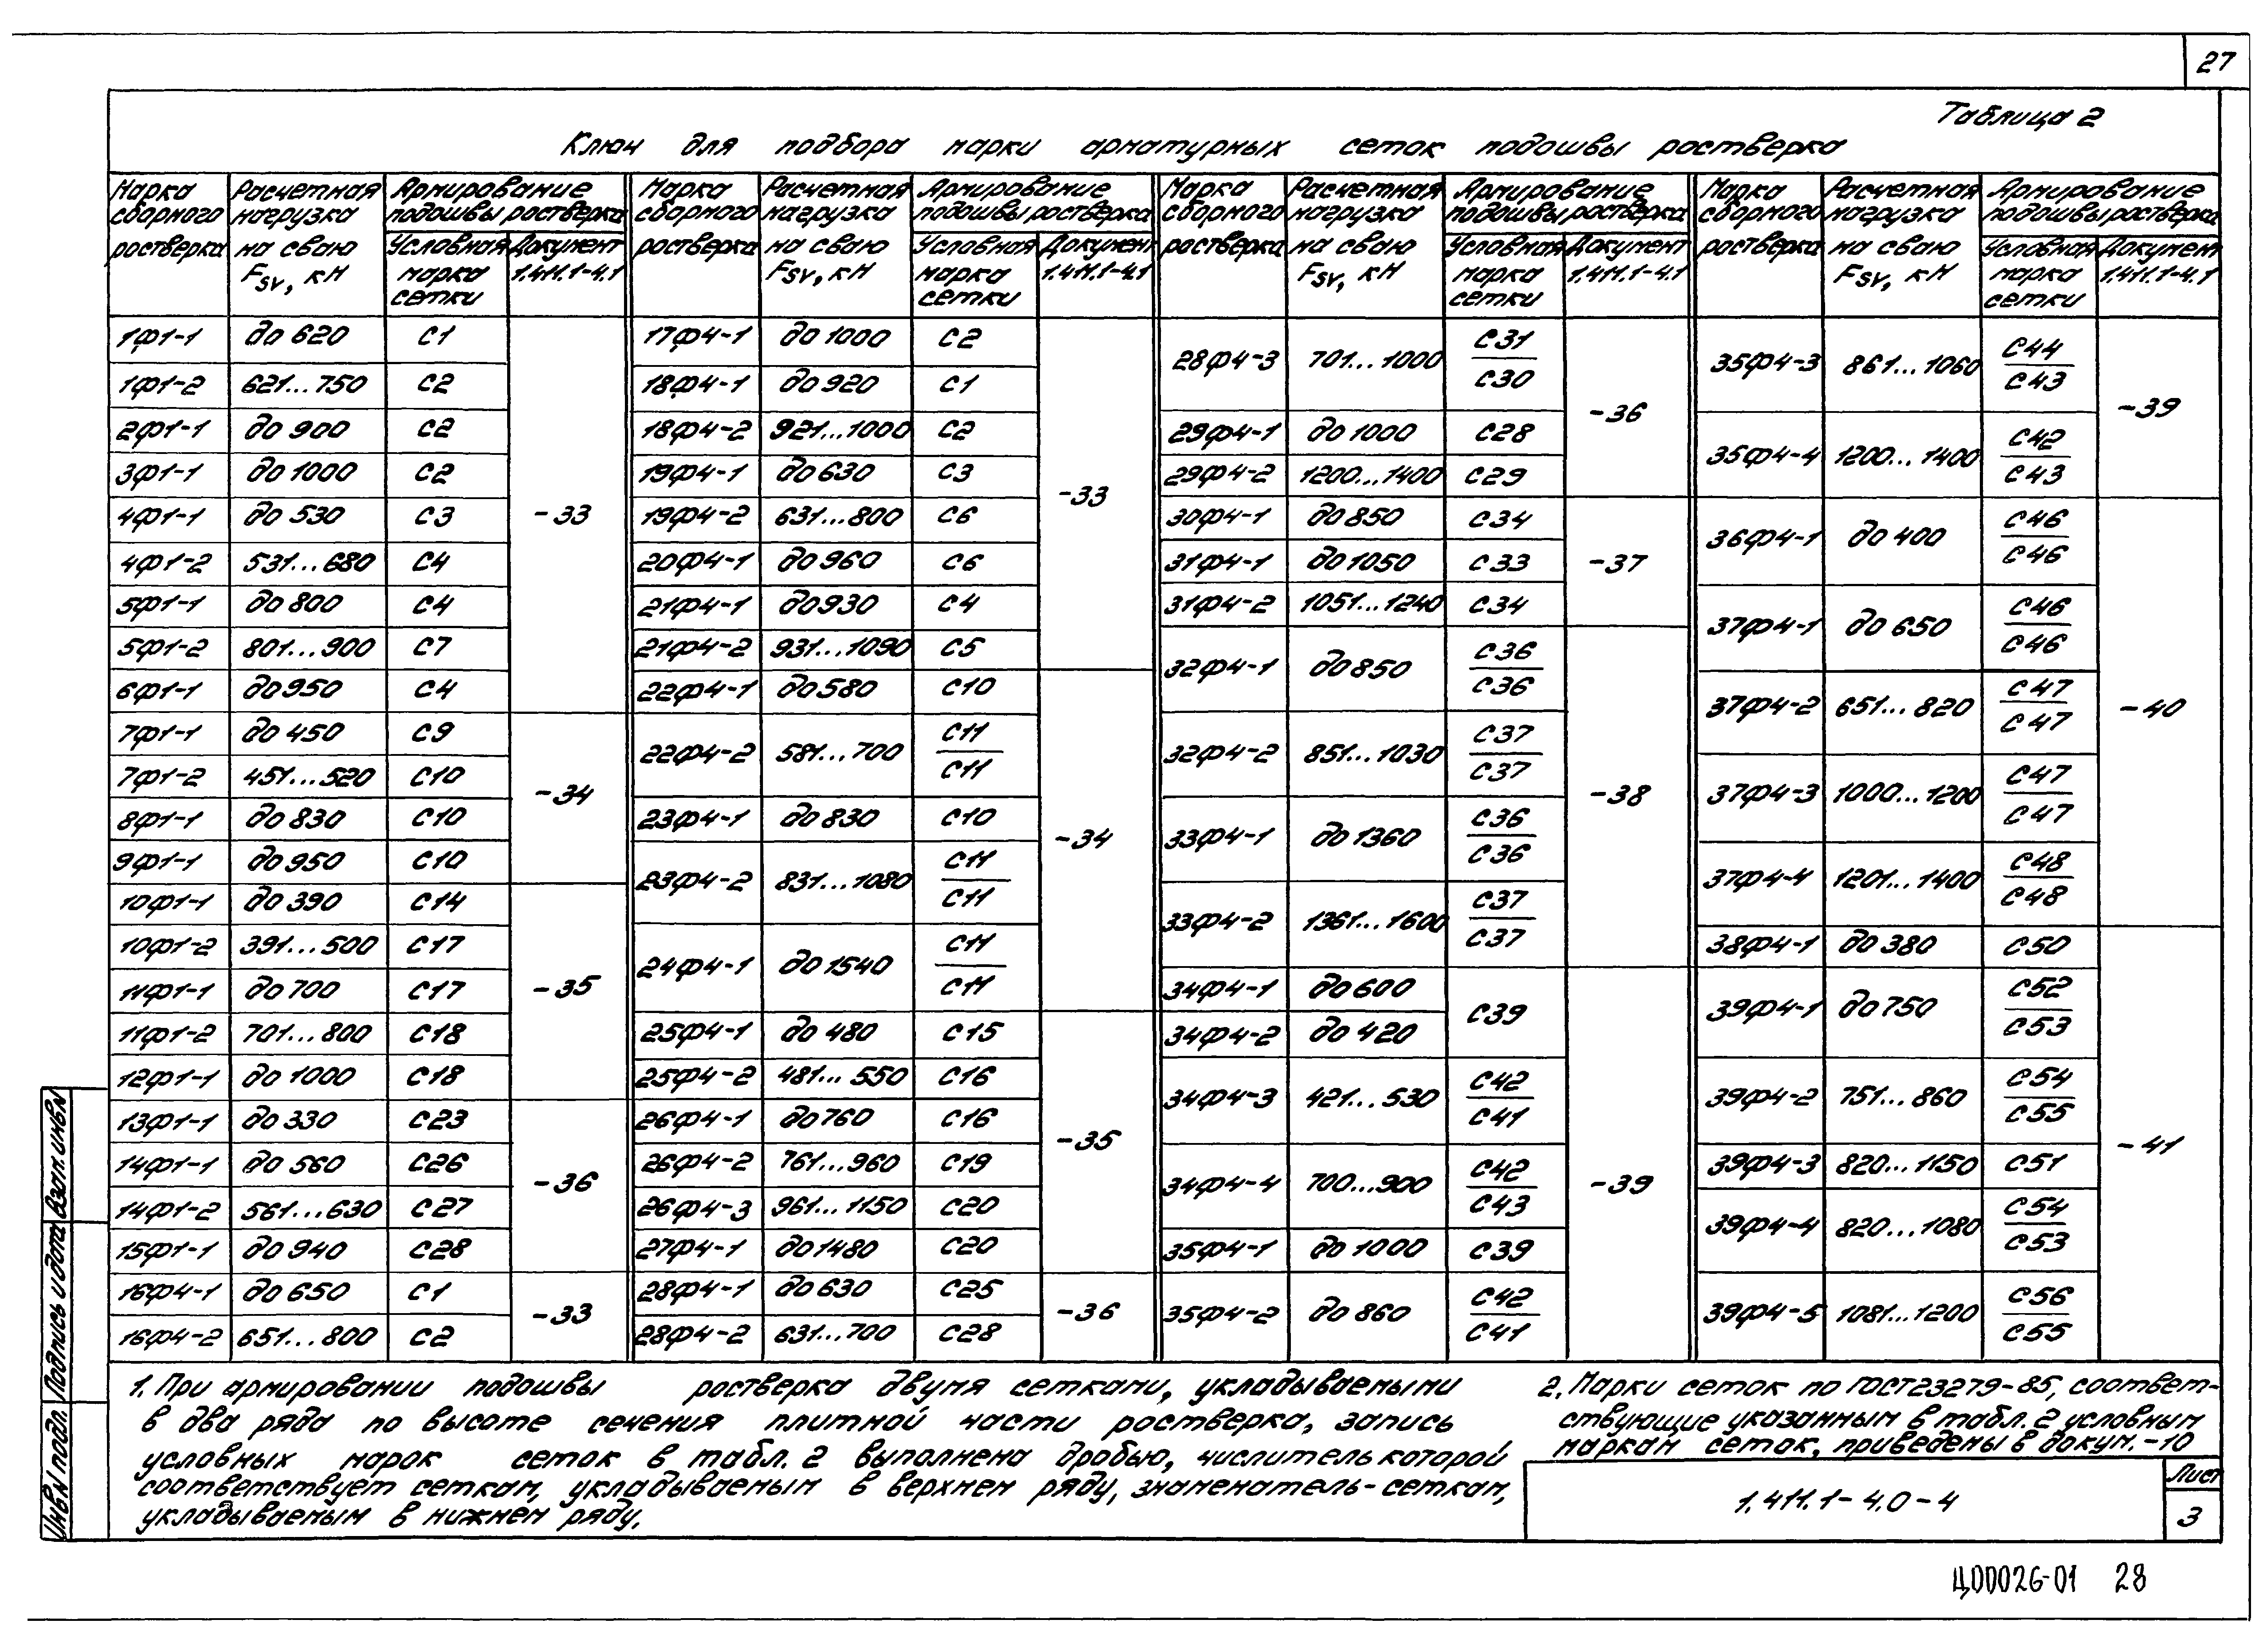 27
Таблица 2
Ключ для подбора марки арматурных сеток подошвы ростверка
Марка сборного ростверка | Расчетная нагрузка на сваю Fsv, кН | Армирование подошвы ростверка | Условная марка сетки | Документ 1.411.1-4.1
1ф1-1 до 620 С1
1ф1-2 621...750 С2
2ф1-1 до 900 С2
3ф1-1 до 1000 С2
4ф1-1 до 530 С3 -33
4ф1-2 531...680 С4
5ф1-1 до 800 С4
5ф1-2 801...900 С7
6ф1-1 до 950 С4
7ф1-1 до 450 С9
7ф1-2 451...520 С10 -34
8ф1-1 до 830 С10
9ф1-1 до 950 С10
10ф1-1 до 390 С14
10ф1-2 391...500 С17
11ф1-1 до 700 С17 -35
11ф1-2 701...800 С18
12ф1-1 до 1000 С18
13ф1-1 до 330 С23
14ф1-1 до 560 С26 -36
14ф1-2 561...630 С27
15ф1-1 до 940 С28
16ф4-1 до 650 С1 -33
16ф4-2 651...800 С2
Марка сборного ростверка | Расчетная нагрузка на сваю Fsv, кН | Армирование подошвы ростверка | Условная марка сетки | Документ 1.411.1-4.1
17ф4-1 до 1000 С2
18ф4-1 до 920 С1
18ф4-2 921...1000 С2
19ф4-1 до 630 С3 -33
19ф4-2 631...800 С6
20ф4-1 до 960 С6
21ф4-1 до 930 С4
21ф4-2 931...1090 С5
22ф4-1 до 580 С10
22ф4-2 581...700 С11/С11
23ф4-1 до 830 С10 -34
23ф4-2 831...1080 С11/С11
24ф4-1 до 1540 С11/С11
25ф4-1 до 480 С15
25ф4-2 481...550 С16
26ф4-1 до 760 С16 -35
26ф4-2 761...960 С19
26ф4-3 961...1150 С20
27ф4-1 до 1480 С20
28ф4-1 до 630 С25 -36
28ф4-2 631...700 С28
Марка сборного ростверка | Расчетная нагрузка на сваю Fsv, кН | Армирование подошвы ростверка | Условная марка сетки | Документ 1.411.1-4.1
28ф4-3 701...1000 С31/С30 -36
29ф4-1 до 1000 С28
29ф4-2 1200...1400 С29
30ф4-1 до 850 С34
31ф4-1 до 1050 С33 -37
31ф4-2 1051...1240 С34
32ф4-1 до 850 С36/С36
32ф4-2 851...1030 С37/С37 -38
33ф4-1 до 1360 С36/С36
33ф4-2 1361...1600 С37/С37
34ф4-1 до 600 С39
34ф4-2 до 420
34ф4-3 421...530 С42/С41
34ф4-4 700...900 С42/С43 -39
35ф4-1 до 1000 С39
35ф4-2 до 860 С42/С41
Марка сборного ростверка | Расчетная нагрузка на сваю Fsv, кН | Армирование подошвы ростверка | Условная марка сетки | Документ 1.411.1-4.1
35ф4-3 861...1060 С44/С43 -39
35ф4-4 1200...1400 С42/С43
36ф4-1 до 400 С46/С46
37ф4-1 до 650 С46/С46
37ф4-2 651...820 С47/С47 -40
37ф4-3 1000...1200 С47/С47
37ф4-4 1201...1400 С48/С48
38ф4-1 до 380 С50
39ф4-1 до 750 С52/С53
39ф4-2 751...860 С54/С55 -41
39ф4-3 820...1150 С51
39ф4-4 820...1080 С54/С53
39ф4-5 1081...1200 С56/С55
1. При армировании подошвы ростверка двумя сетками, укладываемыми
в два ряда по высоте сечения плитной части ростверка, запись
условных марок сеток в табл. 2 выполнена дробью, числитель которой
соответствует сеткам, укладываемым в верхнем ряду, знаменатель-сеткам,
укладываемым в нижнем ряду.
2. Марки сеток по ГОСТ 23279-85, соответ-
ствующие указанным в табл. 2 условным
маркам сеток, приведены в докум. -10
1.411.1-4.0-4
Лист
3
Инв.N подл. Подпись и дата Взам.инв.N
Ц00026-01 28